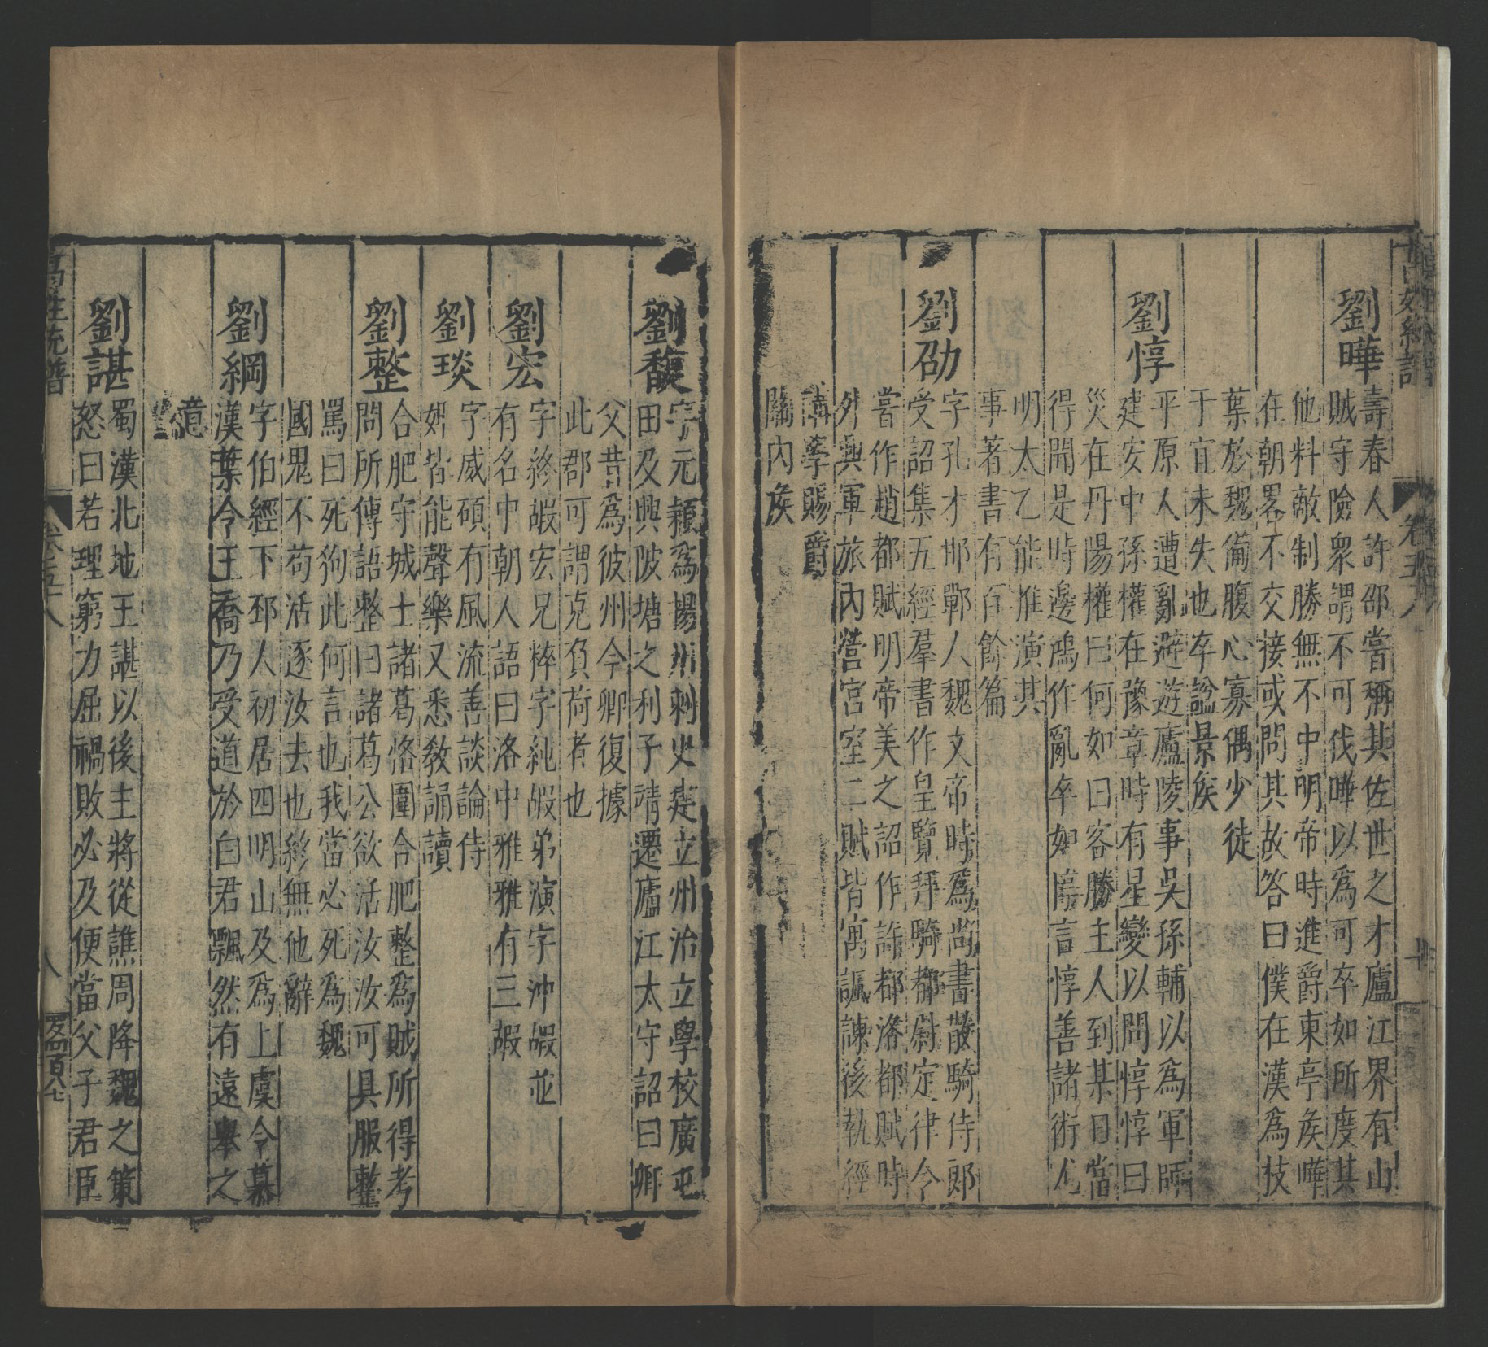 劉曄
壽春人許邵嘗稱其佐世之才廬江界有山
賊守險衆謂不可伐曄以爲可卒如所度其
他料敵制勝無不中明帝時進爵東亭矦曄
在朝畧不交接或問其故答曰僕在漢爲技
葉於魏備腹心寡偶少徒
于宜未失也卒諡景矦
劉惇
平原人遭亂避遊廬陵事吳孫輔以爲軍師
建安中孫權在豫章時有星變以問惇惇曰
災在丹陽權曰何如曰客勝主人到某日當
得聞是時邊鴻作亂卒如惇言惇善諸術尤
明太乙能推演其
事著書有百餘篇
劉劭
字孔才邯鄲人魏文帝時爲尚書散騎侍郎
受詔集五經羣書作皇覽拜騎都尉定律令
嘗作趙都賦明帝美之詔作許都洛都賦時
外興軍旅內營宮室二賦皆寓諷諫後執經
講學賜爵
關內矦
劉馥
字元穎爲揚州刺史建立州治立學校廣屯
田及興陂塘之利子靖遷廬江太守詔曰卿
父昔爲彼州今卿復據
此郡可謂克負荷者也
劉宏
字終嘏宏兄粹字純嘏弟演字沖嘏並
有名中朝人語曰洛中雅雅有三嘏
劉琰
字威碩有風流善談論侍
婢皆能聲樂又悉敎誦讀
劉整
合肥守城士諸葛恪圍合肥整爲賊所得考
問所傳語整曰諸葛公欲活汝汝可具服整
罵曰死狗此何言也我當必死爲魏
國鬼不苟活逐汝去也終無他辭
劉綱
字伯經下邳人初居四明山及爲上虞令慕
漢葉令王喬乃受道於白君飄然有遠舉之
意
劉諶
蜀漢北地王諶以後主將從譙周降魏之策
怒曰若理窮力屈禍敗必及便當父子君臣